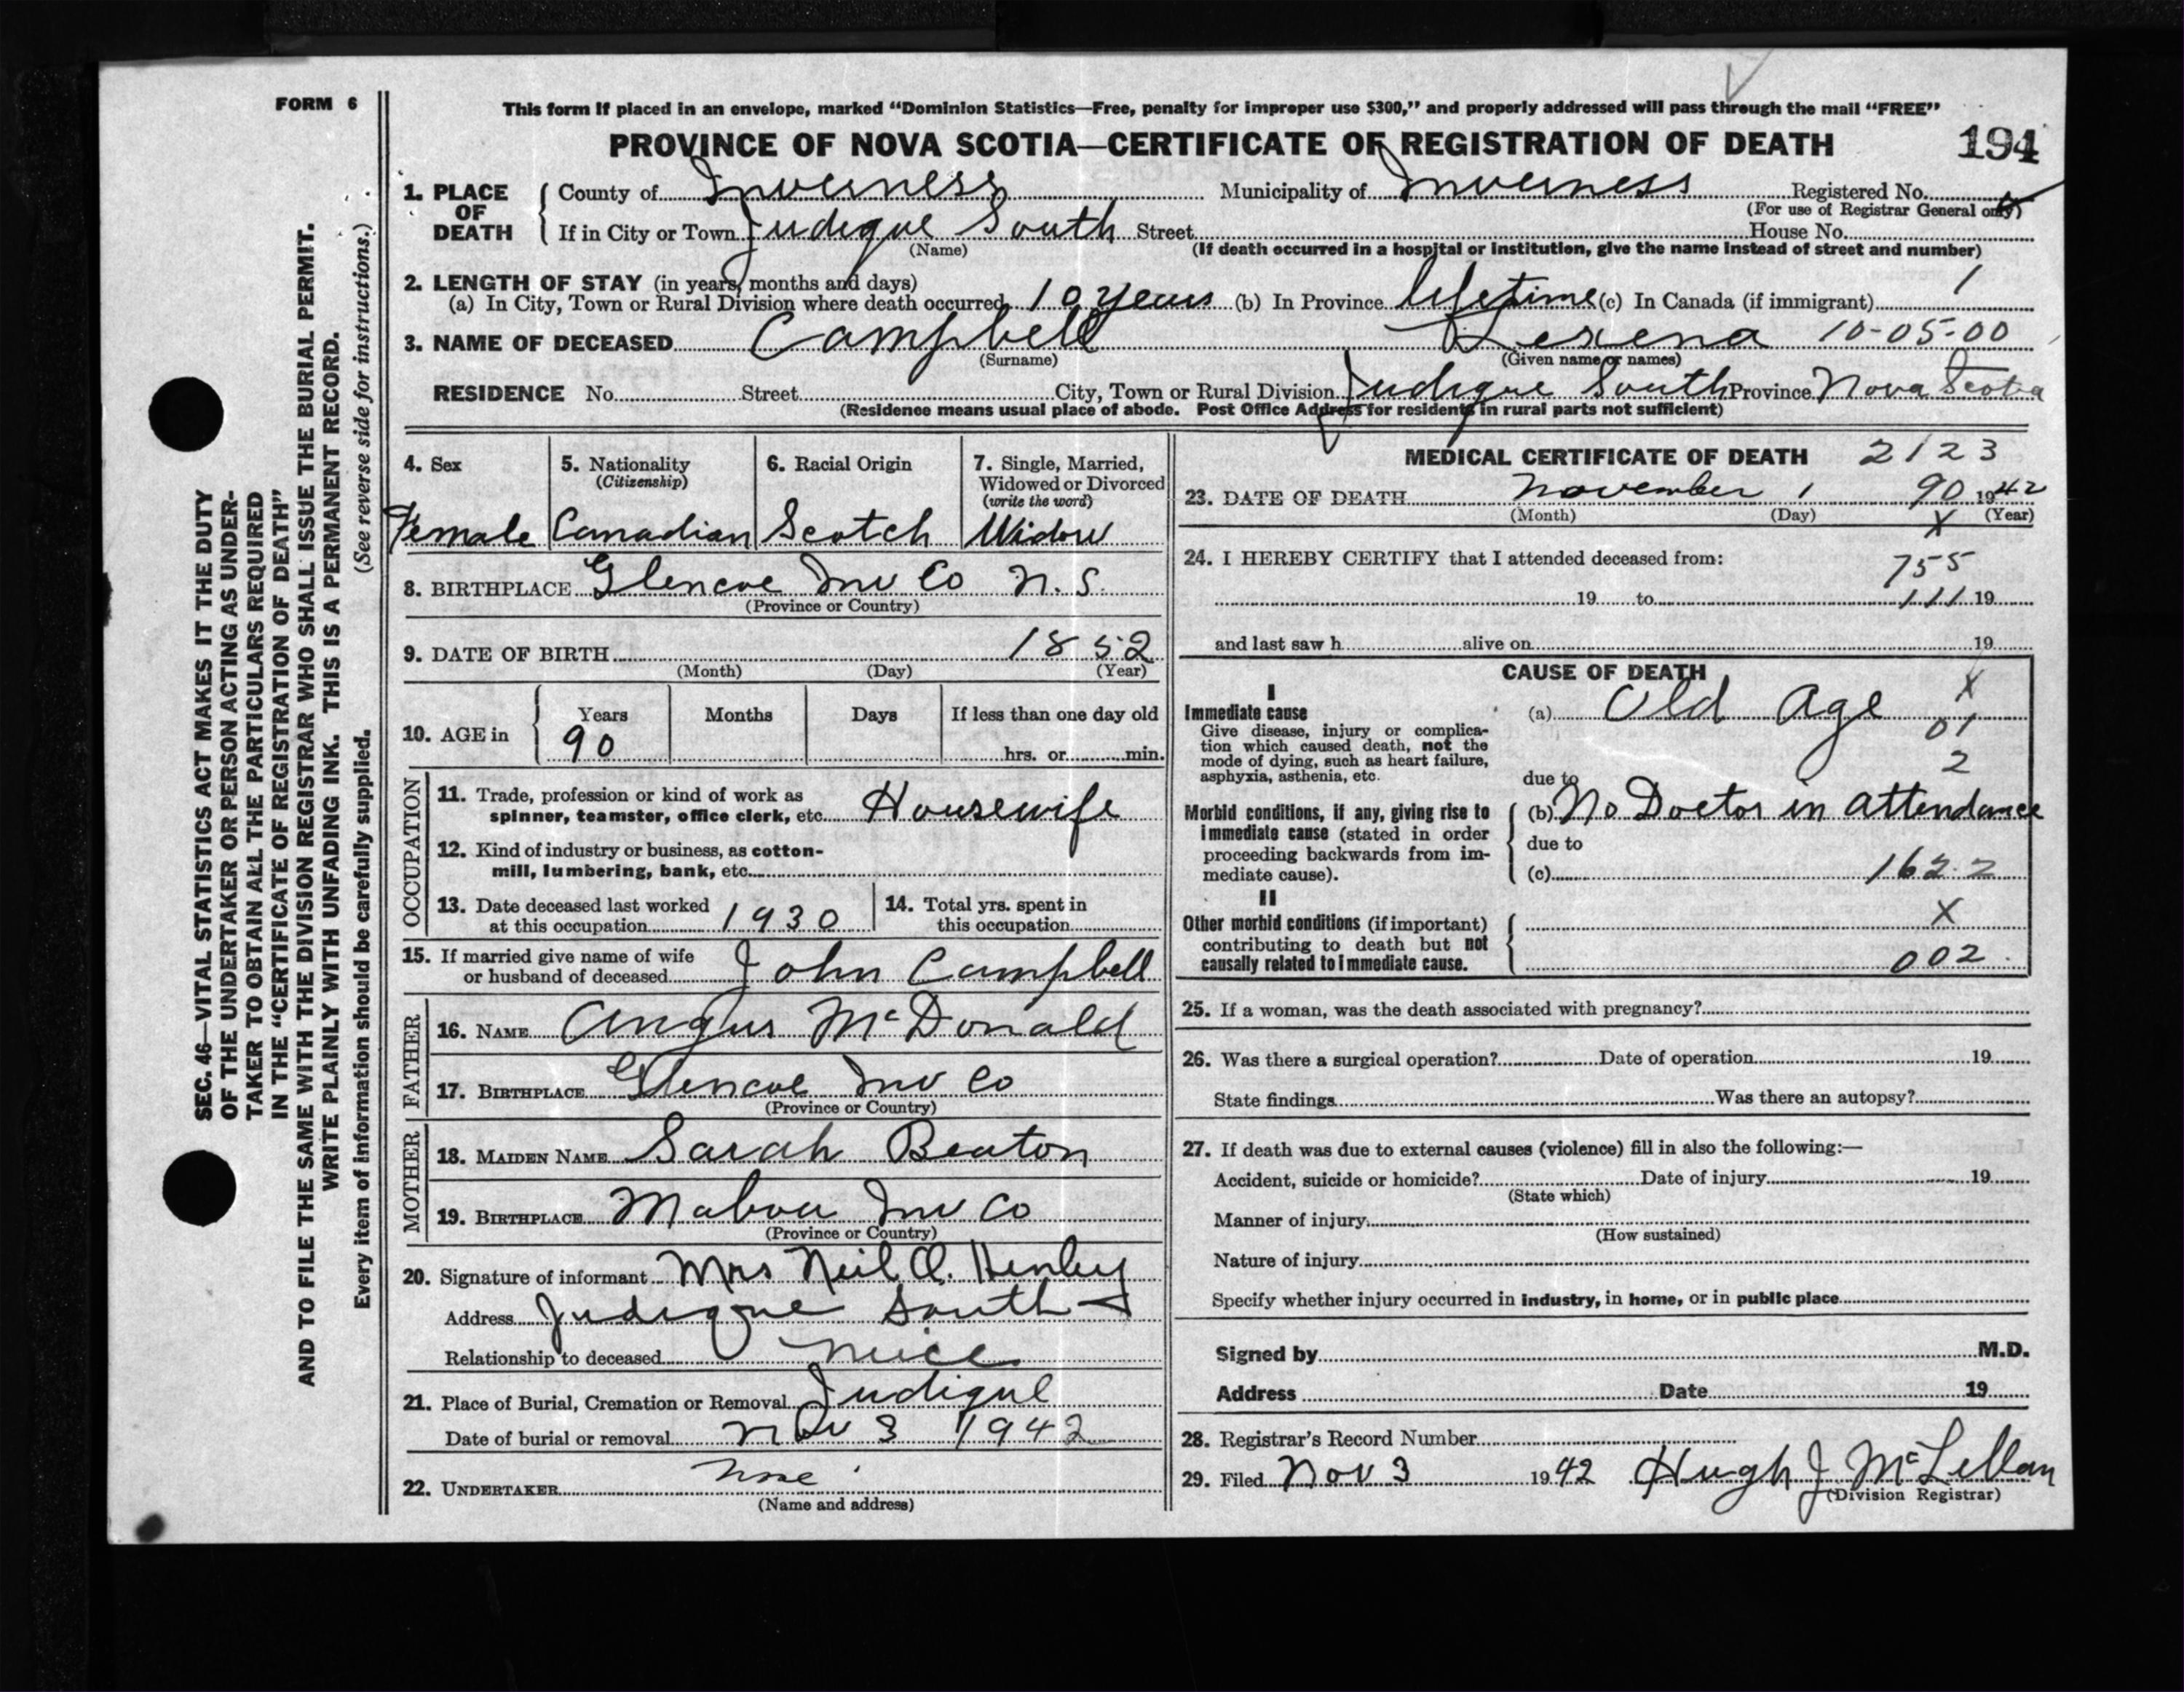 FORM 6
This form if placed in an envelope, marked “Dominion Statistics—Free, penalty for improper use $300,” and properly addressed will pass through the mail “FREE”
PROVINCE OF NOVA SCOTIA—CERTIFICATE OF REGISTRATION OF DEATH 194
SEC. 46—VITAL STATISTICS ACT MAKES IT THE DUTY
OF THE UNDERTAKER OR PERSON ACTING AS UNDER-
TAKER TO OBTAIN ALL THE PARTICULARS REQUIRED
IN THE “CERTIFICATE OF REGISTRATION OF DEATH”
AND TO FILE THE SAME WITH THE DIVISION REGISTRAR WHO SHALL ISSUE THE BURIAL PERMIT.
WRITE PLAINLY WITH UNFADING INK. THIS IS A PERMANENT RECORD.
Every item of information should be carefully supplied. (See reverse side for instructions.)
1. PLACE OF DEATH
County of Inverness Municipality of Inverness Registered No.
(For use of Registrar General only)
If in City or Town Judique South Street House No.
(Name) (If death occurred in a hospital or institution, give the name instead of street and number)
2. LENGTH OF STAY (in years, months and days) 1
(a) In City, Town or Rural Division where death occurred 10 years (b) In Province lifetime (c) In Canada (if immigrant)
3. NAME OF DECEASED Campbell Lexena 10-05-00
(Surname) (Given name or names)
RESIDENCE No. Street City, Town or Rural Division Judique South Province Nova Scotia
(Residence means usual place of abode. Post Office Address for residents in rural parts not sufficient)
4. Sex
Female
5. Nationality
(Citizenship)
Canadian
6. Racial Origin
Scotch
7. Single, Married,
Widowed or Divorced
(write the word)
Widow
8. BIRTHPLACE Glencoe Inv Co N.S.
(Province or Country)
9. DATE OF BIRTH 1852
(Month) (Day) (Year)
10. AGE in
Years Months Days If less than one day old
90 hrs. or min.
OCCUPATION
11. Trade, profession or kind of work as
spinner, teamster, office clerk, etc. Housewife
12. Kind of industry or business, as cotton-
mill, lumbering, bank, etc.
13. Date deceased last worked
at this occupation 1930
14. Total yrs. spent in
this occupation
15. If married give name of wife
or husband of deceased John Campbell
FATHER
16. NAME Angus McDonald
17. BIRTHPLACE Glencoe Inv Co
(Province or Country)
MOTHER
18. MAIDEN NAME Sarah Beaton
19. BIRTHPLACE Mabou Inv Co
(Province or Country)
20. Signature of informant Mrs Neil A. Henley
Address Judique South
Relationship to deceased neice
21. Place of Burial, Cremation or Removal Judique
Date of burial or removal Nov 3 1942
22. UNDERTAKER none
(Name and address)
MEDICAL CERTIFICATE OF DEATH 2123
23. DATE OF DEATH November 1 90 1942
(Month) (Day) X (Year)
24. I HEREBY CERTIFY that I attended deceased from:
755
19 to 111 19
and last saw h alive on 19
CAUSE OF DEATH
I
Immediate cause
Give disease, injury or complica-
tion which caused death, not the
mode of dying, such as heart failure,
asphyxia, asthenia, etc.
(a) Old Age X
01
2
due to
Morbid conditions, if any, giving rise to
immediate cause (stated in order
proceeding backwards from im-
mediate cause).
(b) No Doctor in attendance
due to
(c) 162.2
II
Other morbid conditions (if important)
contributing to death but not
causally related to immediate cause.
X
002
25. If a woman, was the death associated with pregnancy?
26. Was there a surgical operation? Date of operation 19
State findings Was there an autopsy?
27. If death was due to external causes (violence) fill in also the following:—
Accident, suicide or homicide? Date of injury 19
(State which)
Manner of injury
(How sustained)
Nature of injury
Specify whether injury occurred in industry, in home, or in public place
Signed by M.D.
Address Date 19
28. Registrar's Record Number
29. Filed Nov 3 1942 Hugh J McLellan
(Division Registrar)